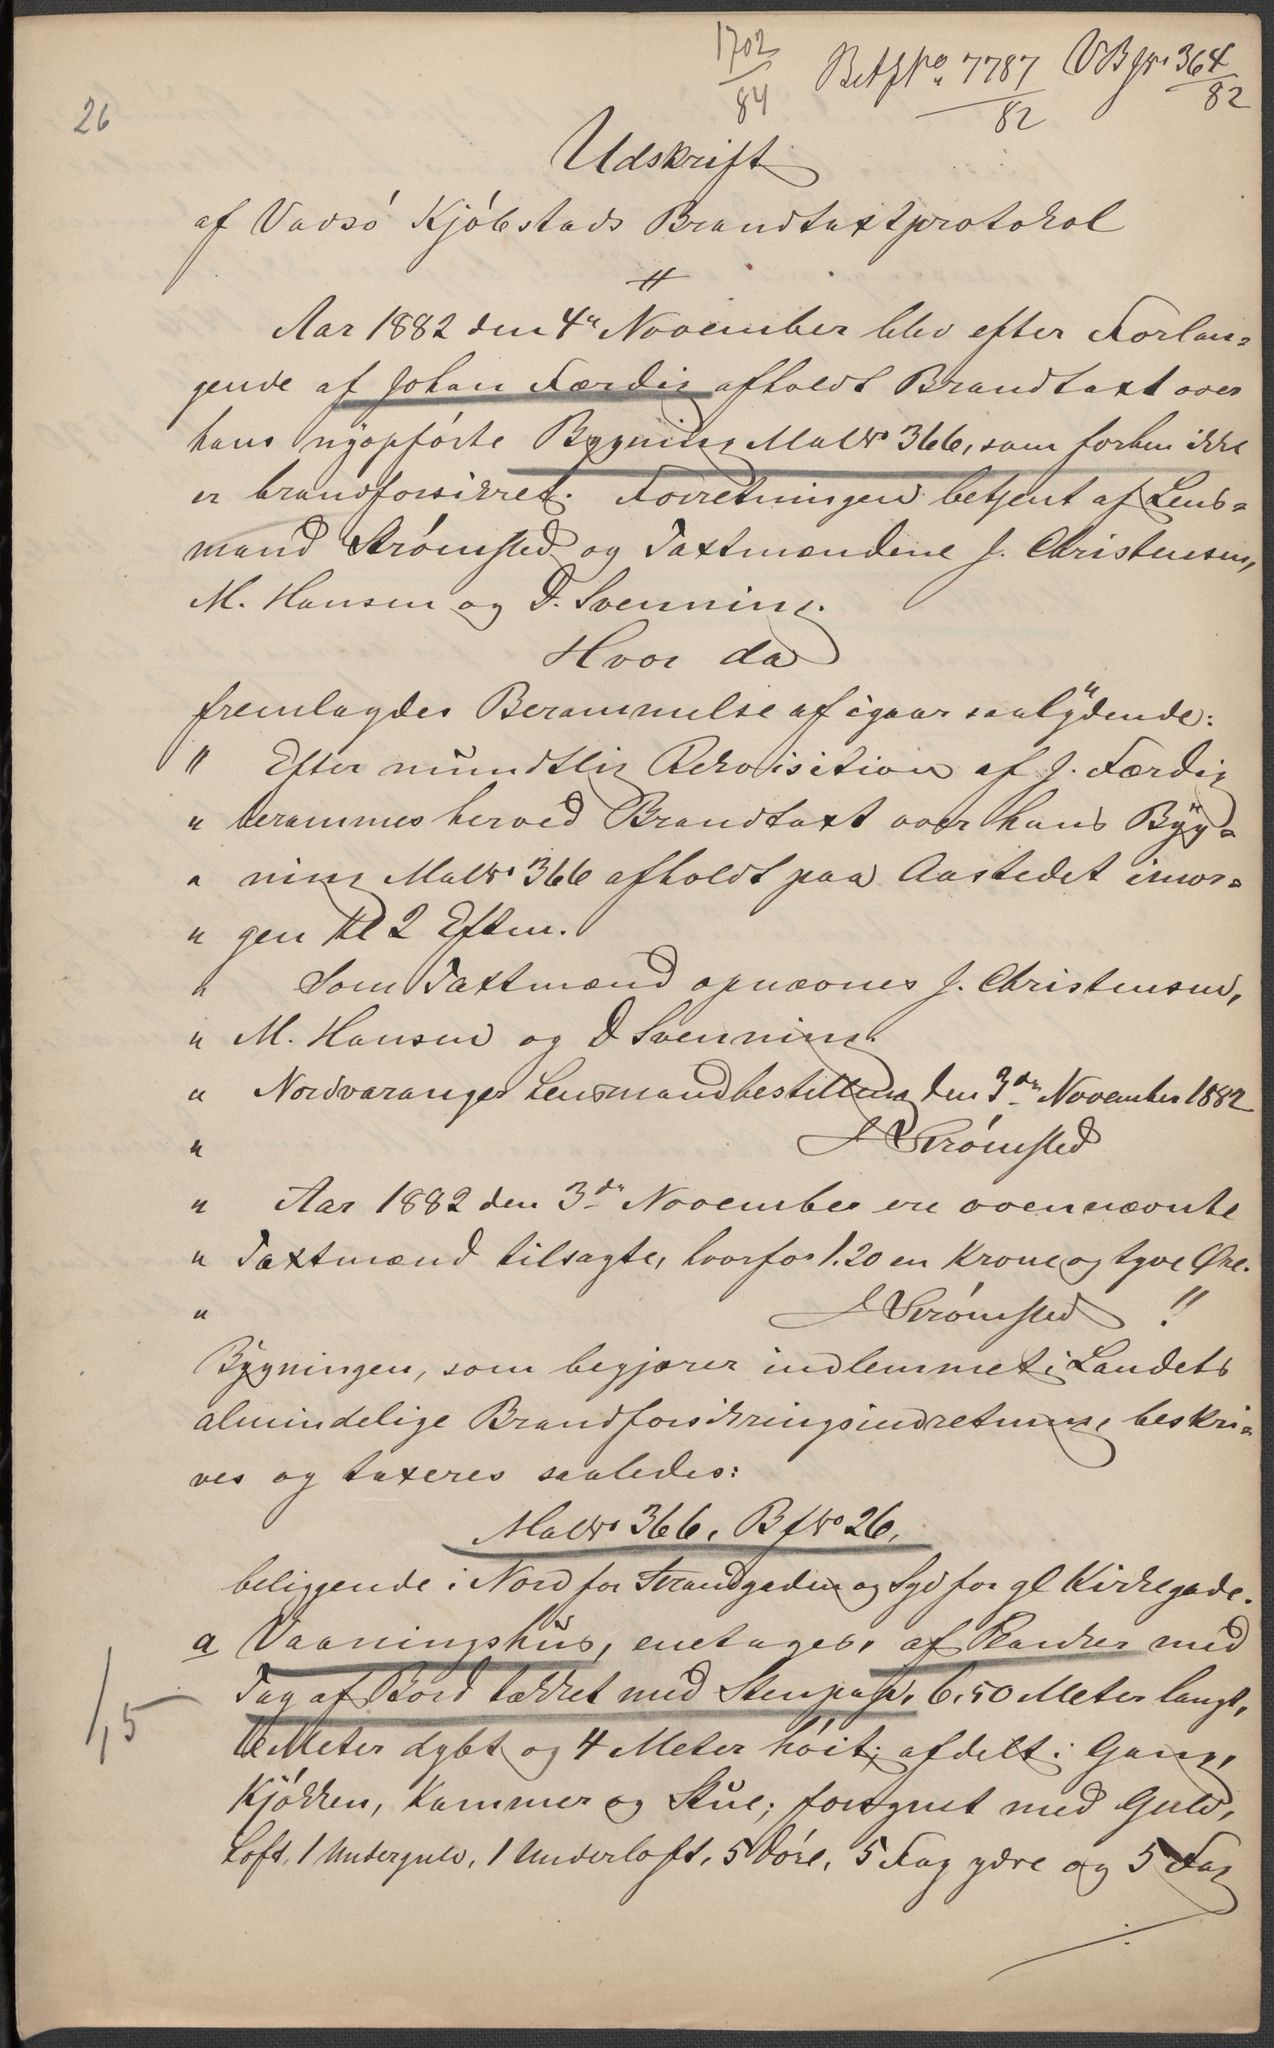 1702
84
BrtfNo 7787
82
VBfNo 364
82
26
Udskrift
af Vadsö Kjöbstads Brandtaxtprotokol
Aar 1882 den 4de November blev efter Forlan-
gende af Johan Færdig afholdt Brandtaxt over
hans nyopförte Bygning Mal No 366, som forhen ikke
er brandforsikret. Forretningen betjent af Lens-
mand Strömsted og Taxtmændene J. Christensen,
M. Hansen og D. Svenning.
Hvor da
fremlagdes Berammelse af igaar saalydende:
" Efter mundtlig Rekvisition af J. Færdig
" berammes herved Brandtaxt over hans Byg-
" ning Mal No 366 afholdt paa Aastedet imor-
" gen Kl 2 Eftm.
" Som Taxtmænd opnævnes J. Christensen,
" M. Hansen og D Svenning.
" Nordvaranger Lensmandbestilling den 3die November 1882
" J Strömsted
" Aar 1882 den 3die November ere ovennævnte
" Taxtmænd tilsagte, hvorfor 1.20 en Krone og tyve Øre.
" J Strömsted "
Bygningen, som begjærer indlemmet i Landets
almindelige Brandforsikringsindretning, beskri-
ves og taxeres saaledes:
Mal No 366, Bf No 26,
beliggende i Nord for Strandgaden og Syd for gl Kirkegade.
a Vaaningshus, enetages, af Planker med
Tag af Bord tækket med Stenpap, 6,50 Meter langt,
6 Meter dybt og 4 Meter höit; afdelt i Gang,
Kjökken, Kammer og Stue; forsynet med Gulv,
Loft, 1 Undergulv, 1 Underloft, 5 Döre, 5 Fag ydre og 5 Fag
1,5